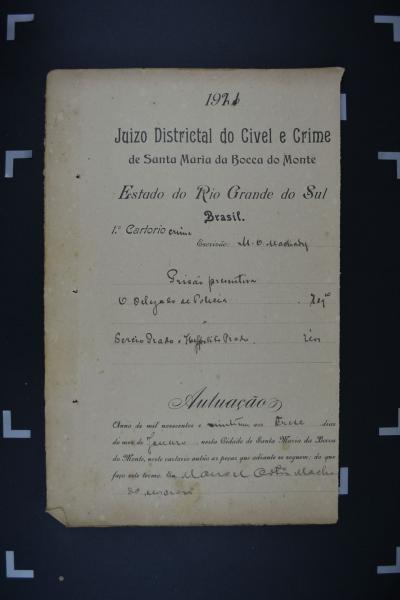 1921
Juizo Districtal do Civel e Crime
de Santa Maria da Bocca do Monte
Estado do Rio Grande do Sul
Brasil.
1.º Cartorio crime
Escrivão: M. O. Machado
Prisão preventiva
O Delegado de Policia
Sergio Prado e Hyppolito Prado. Réos
Autuação
Anno de mil novecentos e vinte um aos treze dias
do mez de Janeiro, nesta Cidade de Santa Maria da Bocca
do Monte, neste cartorio autúo as peças que adiante se seguem; do que
faço este termo. Eu Manoel